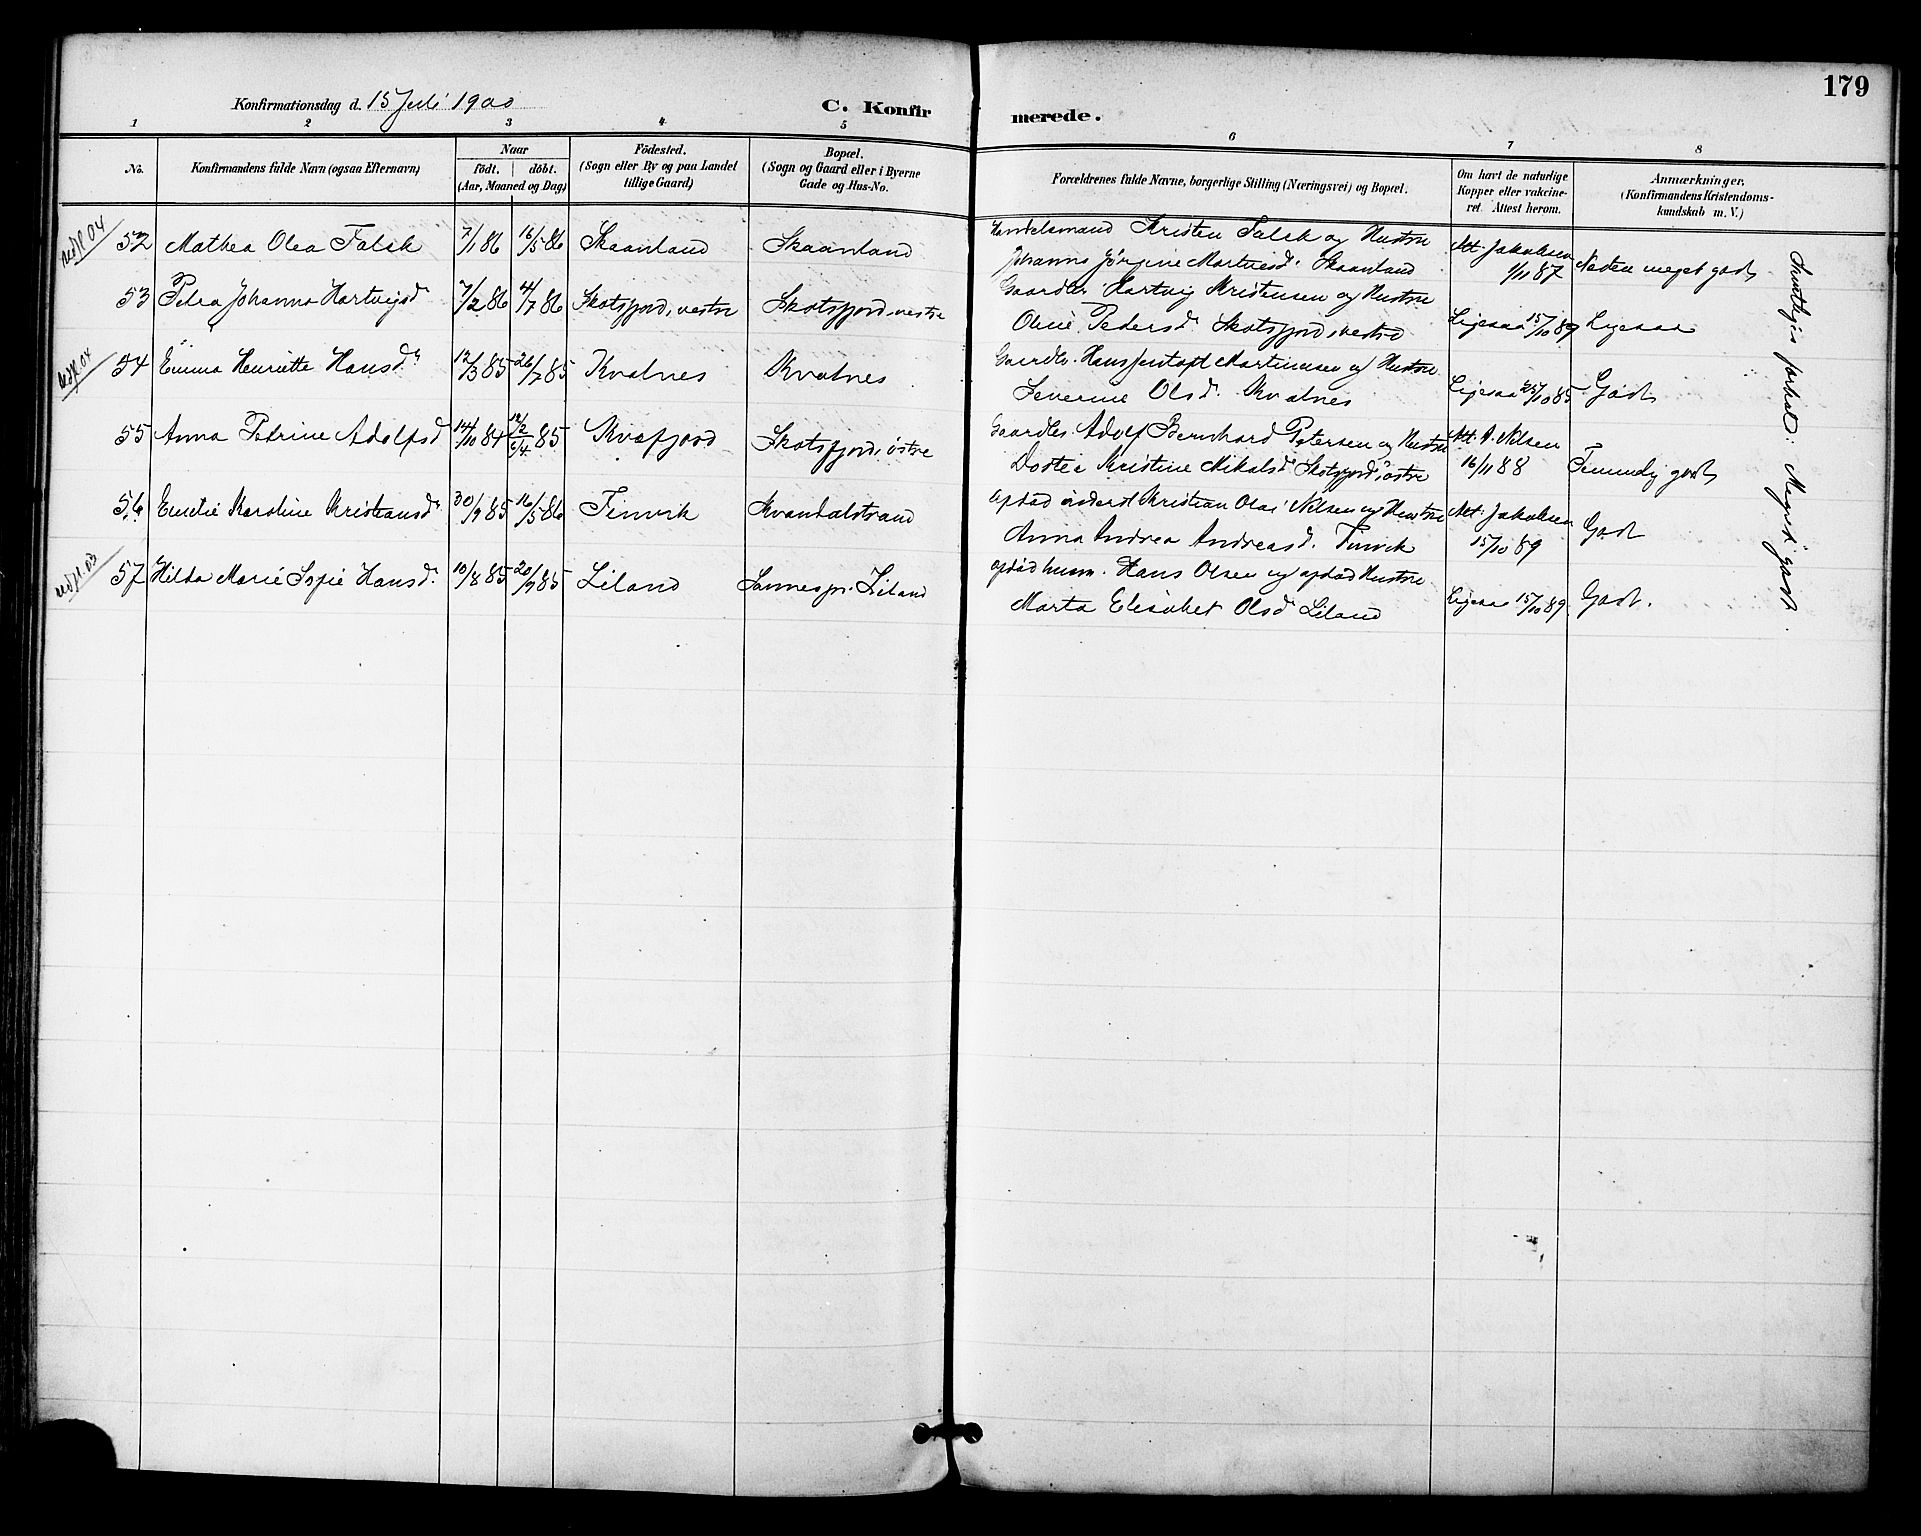 179
Konfirmationsdag d. 15 Juli 1900
C. Konfir merede.
1 2 3 4 5 6 7 8
No.
Konfirmandens fulde Navn (ogsaa Efternavn)
Naar
födt. döbt.
(Aar, Maaned og Dag)
Födested.
(Sogn eller By og paa Landet
tillige Gaard)
Bopæl.
(Sogn og Gaard eller i Byerne
Gade og Hus-No.
Forældrenes fulde Navne, borgerlige Stilling (Næringsvei) og Bopæl.
Om havt de naturlige
Kopper eller vakcine-
ret. Attest herom.
Anmærkninger.
(Konfirmandens Kristendoms-
kundskab m. V.)
52 Mathea Olea Falsk 7/1 86 16/5 86 Skaanland Skaanland
Handelsmand Kristen Falsk og Hustru
Johanna Jörgine Martinesd. Skaanland
Att. Jakobsen
1/11 87
Næsten meget godt
53 Petra Johanna Hartvigsd 7/2 86 4/7 86 Skotsfjord, vestre Skotsfjord, vestre
Gaardbr. Hartvig Kristensen og Hustru
Oline Pedersd. Skotsfjord, vestre
Ligesaa 15/10 89
Ligesaa
54 Emma Henriette Hansd. 12/3 85 26/7 85 Kvalnes Kvalnes
Gaardbr. Hans Jentoft Martinusen og Hustru
Severine Olsd. Kvalnes
Ligesaa 25/10 85
Godt
55 Anna Petrine Adolfsd 14/10 84 12/2 6/4 85 Kvæfjord Skotsfjord, östre
Gaardbr. Adolf Bernhard Petersen og Hustru
Kristine Nikolsd. Skotsfjord, östre
Att. A. Nilsen
16/11 88
Temmelig godt
56 Emelie Karoline Kristiansd. 30/9 85 16/5 86 Finvik Kvandalstrand
Kristian Olai Nilsen og Hustru
Anna Andrea Andreasd. Finvik
Att. Jakobsen
15/10 89
Godt
57 Hilda Marie Sofie Hansd. 10/8 85 20/9 85 Liland Sannes pr. Liland
afdöd husm. Hans Olsen og afdöd Hustru
Marta Elisabet Olsd Liland
Ligesaa 15/10 89.
Godt.
Samtliges forhold: Meget godt.